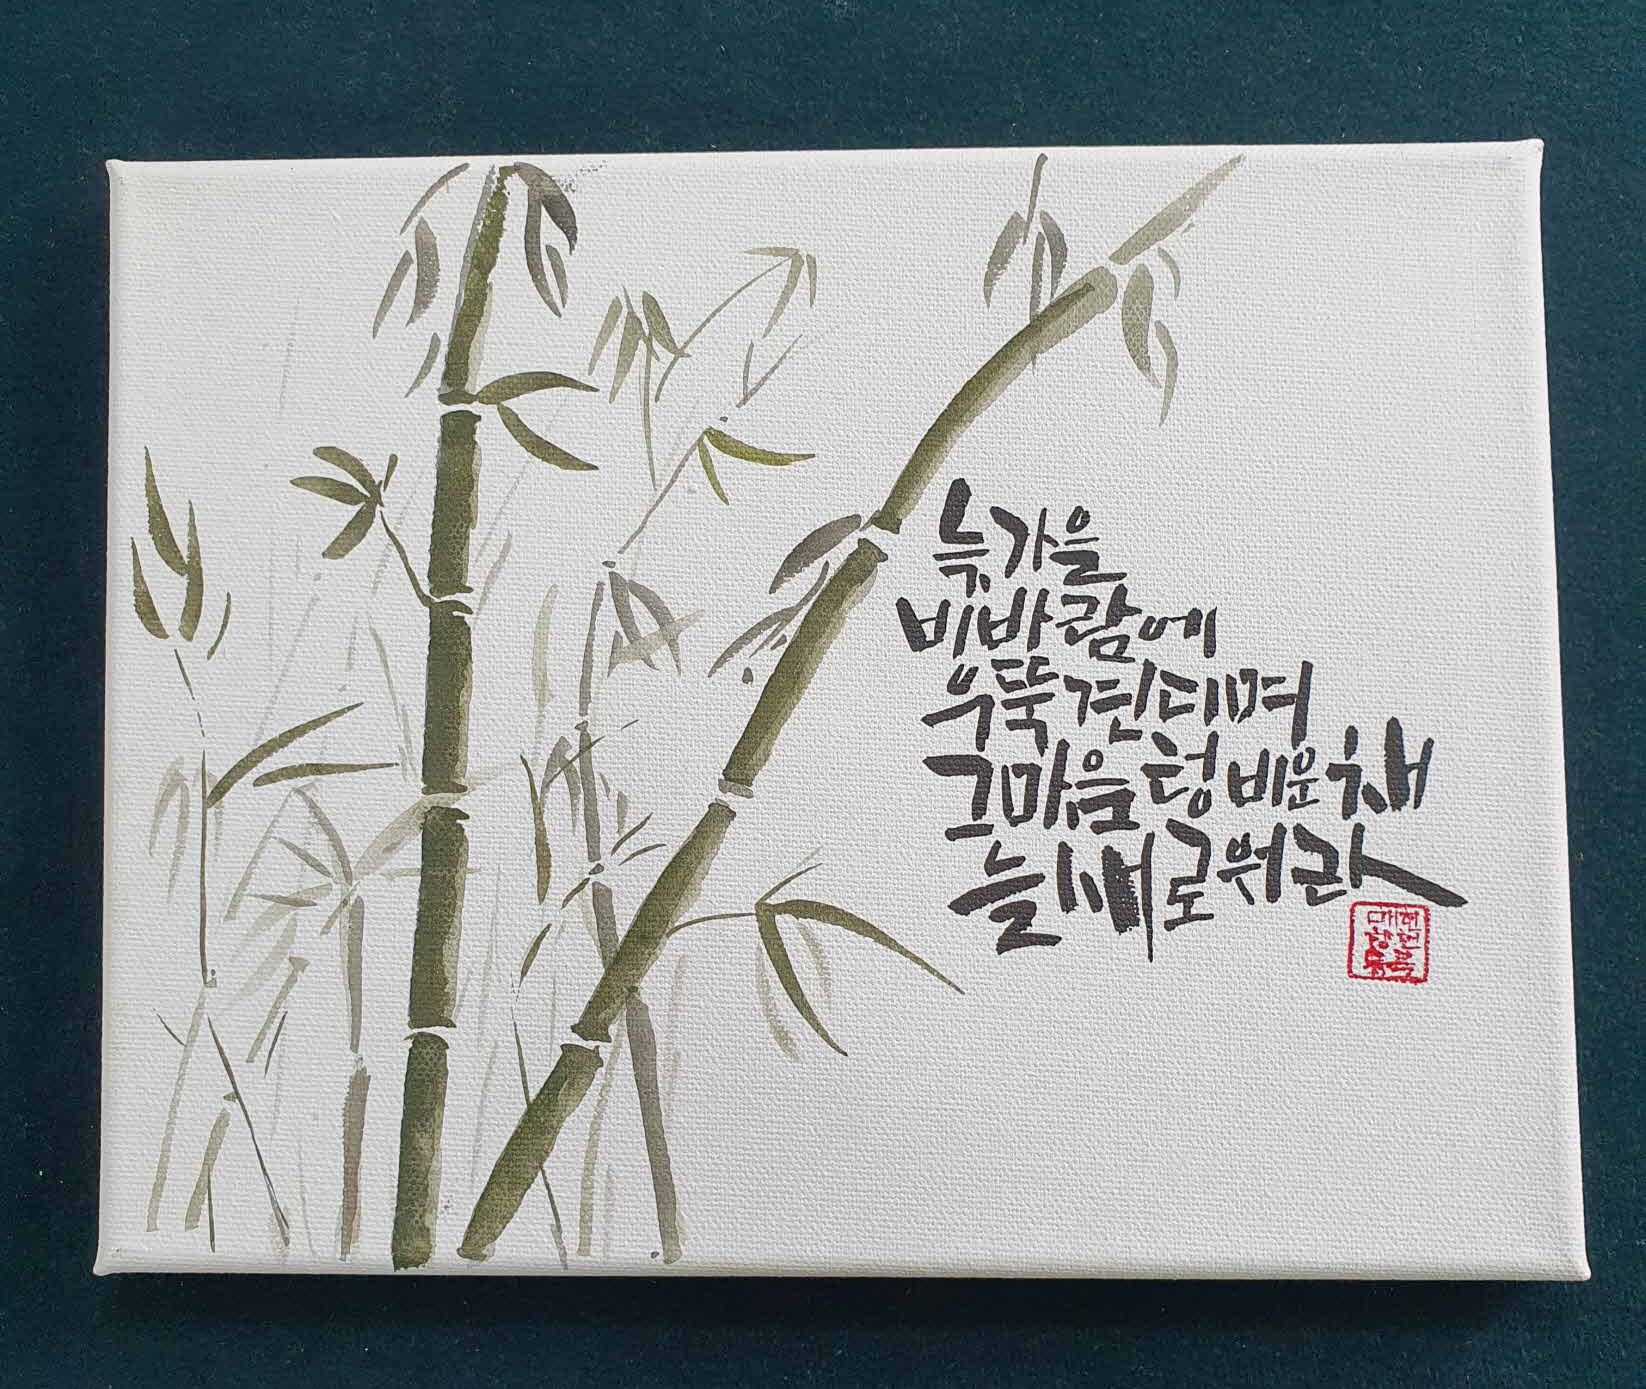 늦가을
비바람에
우뚝 견디며
그 마음 텅 비운 채
늘 새로워라